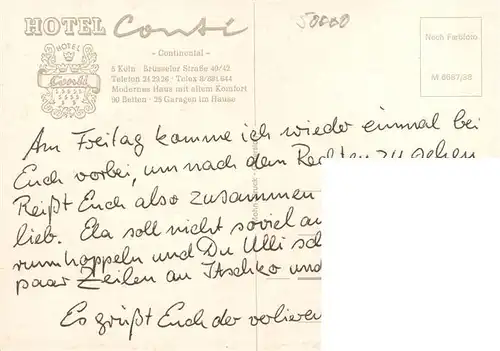 HOTEL Conti
50000
HOTEL
Conti
- Continental -
5 Köln · Brüsseler Straße 40/42
Telefon 24 29 26 · Telex 8/881 644
Modernes Haus mit allem Komfort
90 Betten · 35 Garagen im Hause
Nach Farbfoto
M 6667/88
Am Freitag komme ich wieder einmal bei
Euch vorbei, um nach dem Rechten zu sehen
Reißt Euch also zusammen
lieb. Ela soll nicht soviel
rumhoppeln und Du Ulli
paar Zeilen an Itschko und
Es grüßt Euch der